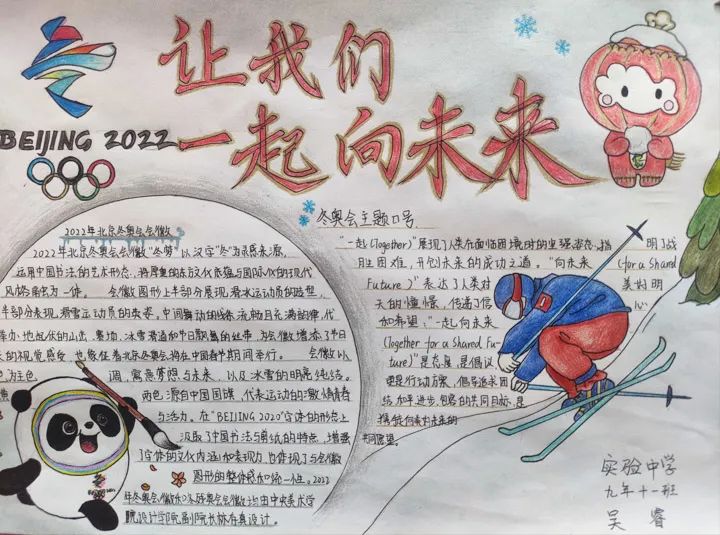 让我们
一起向未来
BEIJING 2022
2022年北京冬奥会会徽
2022年北京冬奥会会徽"冬梦"以汉字"冬"为灵感来源,
运用中国书法的艺术形态,将厚重的东方文化底蕴与国际化的现代
风格融为一体。会徽图形上半部分展现滑冰运动员的造型,
半部分表现滑雪运动员的英姿。中间舞动的线条流畅且充满韵律,代
举办地起伏的山峦、赛场、冰雪滑道和节日飘舞的丝带,为会徽增添了节日
的视觉感受,也象征着北京冬奥会将在中国春节期间举行。会徽以
为主色调,寓意梦想与未来,以及冰雪的明亮纯洁。
两色源自中国国旗,代表运动的激情青春
与活力。在"BEIJING 2020"字体的形态上
汲取了中国书法与剪纸的特点,增强
了字体的文化内涵和表现力,也体现了与会徽
图形的整体感和统一性。2022
年冬奥会会徽和冬残奥会会徽均由中央美术学
院设计学院副院长林存真设计。
冬奥会主题口号
"一起(Together)"展现了人类在面临困境时的坚强姿态,指明了战
胜困难,开创未来的成功之道。"向未来(for a Shared
Future)"表达了人类对美好明
天的憧憬,传递了信心
和希望;"一起向未来
(Together for a Shared Fu-
ture)"是态度,是倡议,
更是行动方案,倡导追求团
结和平进步,包容的共同目标,是
携手走向美好未来的
共同愿望。
实验中学
九年十一班
吴睿